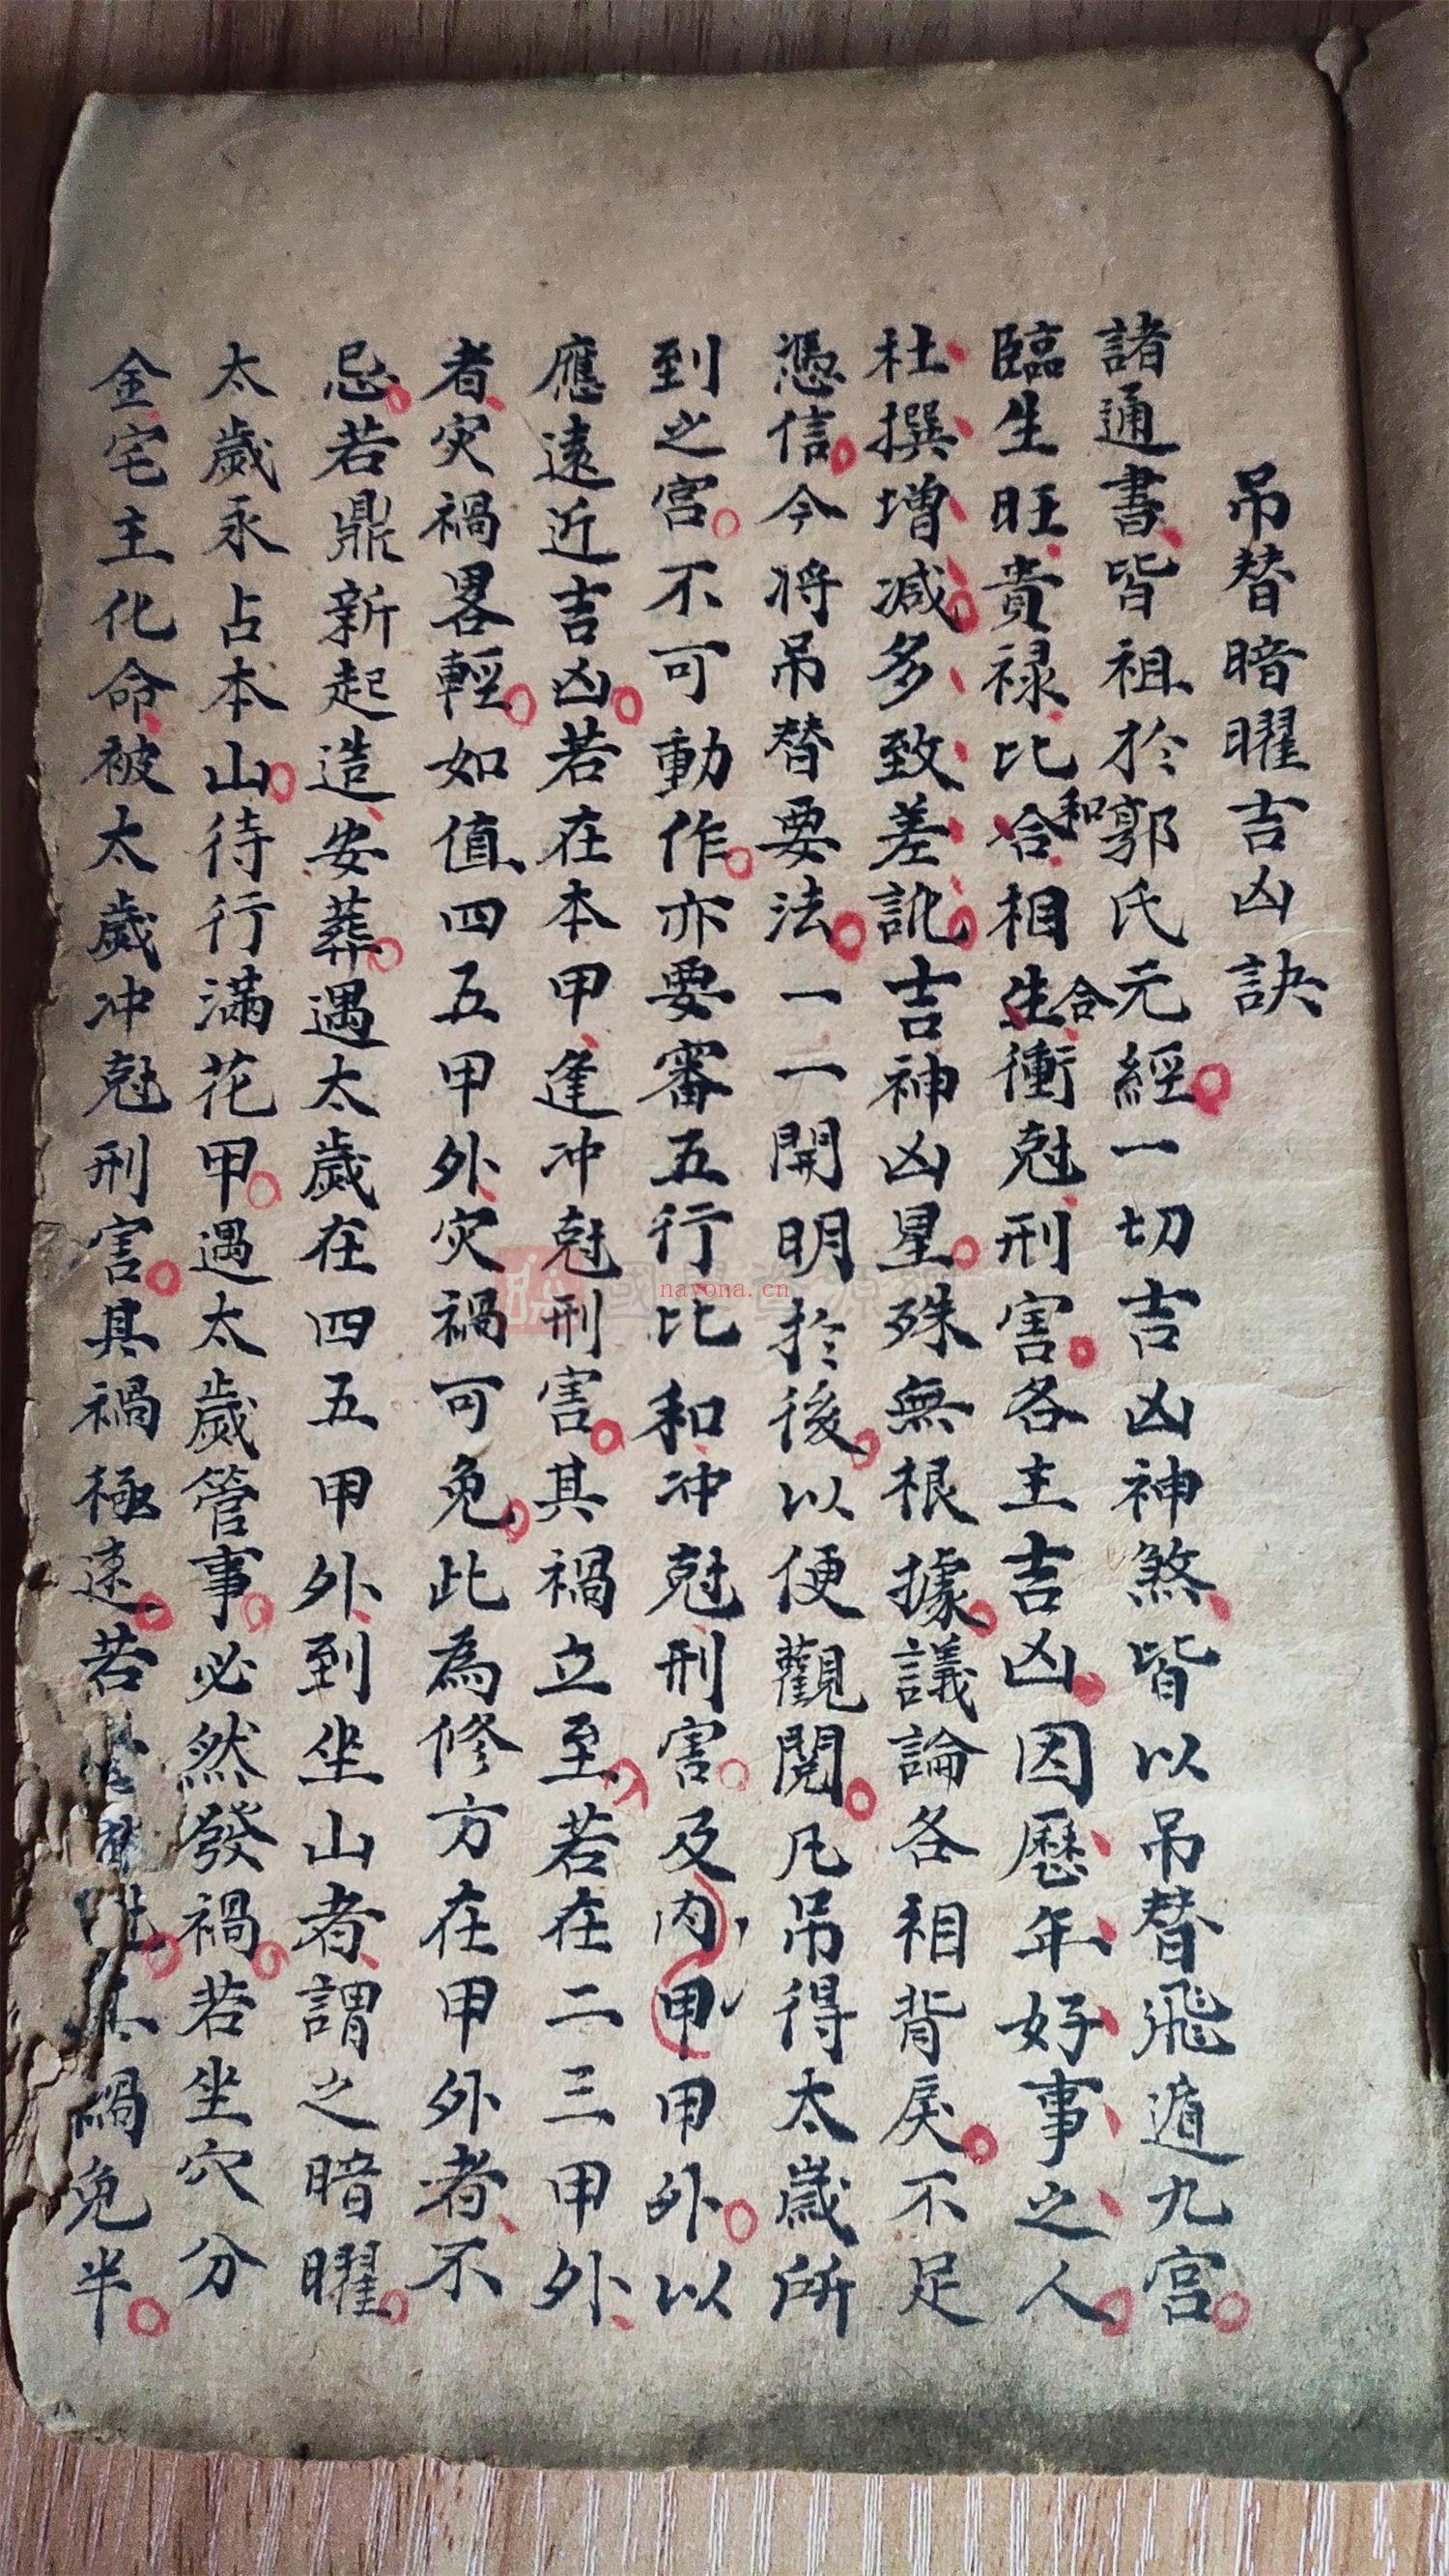 吊替暗曜吉凶訣
諸通書皆祖於郭氏元經一切吉凶神煞皆以吊替飛遁九宮
臨生旺貴祿比合和相生合衝尅刑害各主吉凶因歷年好事之人
杜撰增減多致差訛吉神凶星殊無根據議論各相背戾不足
憑信今将吊替要法一一開明於後以便觀閱凡吊得太歲所
到之宮不可動作亦要審五行比和冲尅刑害及内甲甲外以
應遠近吉凶若在本甲逢冲尅刑害其禍立至若在二三甲外
者灾禍畧輕如值四五甲外灾禍可免此為修方在甲外者不
忌若鼎新起造安葬遇太歲在四五甲外到坐山者謂之暗曜
太歲永占本山待行滿花甲遇太歲管事必然發禍若坐穴分
金宅主化命被太歲冲尅刑害其禍極速若其禍免半
nayona.cn